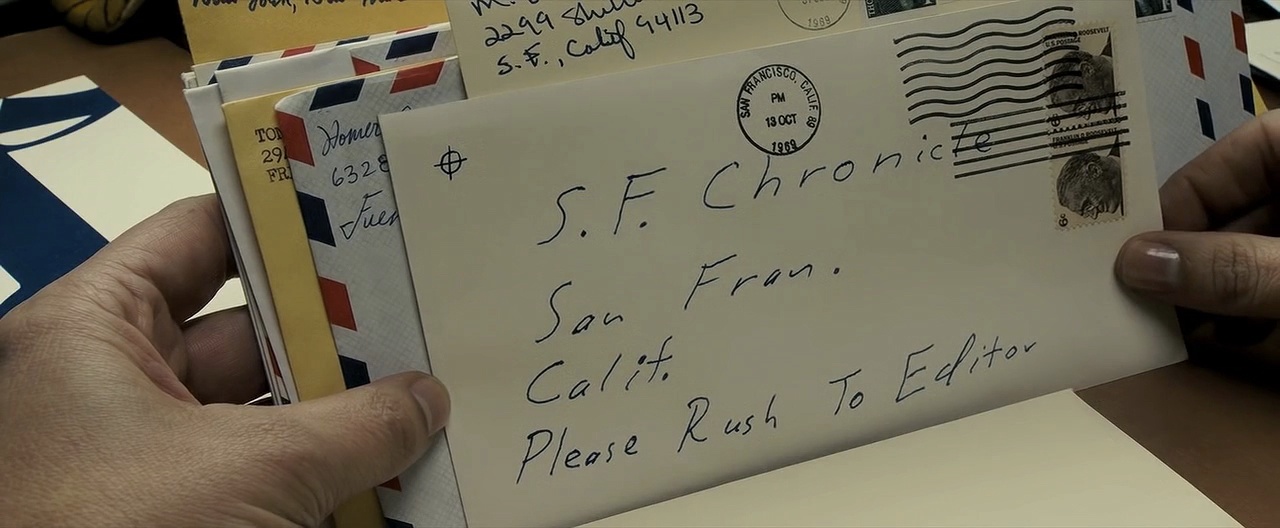 2299
S.F., Calif 94113
1969
TO
29
FR
Homer
6328
SAN FRANCISCO, CALIF.
PM
13 OCT
1969
U.S. POSTAGE
ROOSEVELT
FRANKLIN D. ROOSEVELT
6¢
6¢
S.F. Chronicle
San Fran.
Calif.
Please Rush To Editor